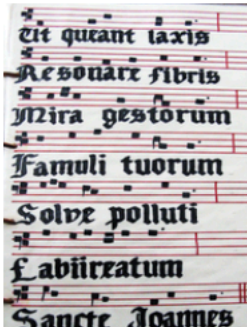 Ut queant laxis
Resonare fibris
Mira gestorum
Famuli tuorum
Solve polluti
Labiireatum
Sancte Joannes